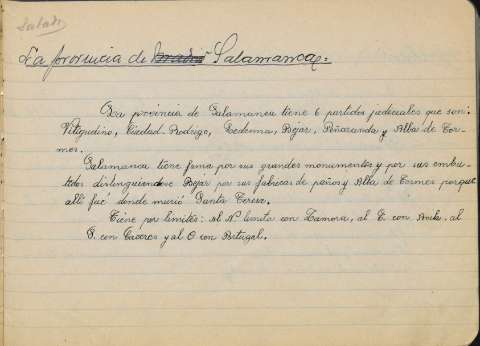 Salada
La provincia de Madrid Salamanca:
La provincia de Salamanca tiene 6 partidos judiciales que son:
Vitigudino, Ciudad-Rodrigo, Ledesma, Bejar, Peñaranda y Alba de Tor-
mes.
Salamanca tiene fama por sus grandes monumentos y por sus embu-
tidos distinguiendose Bejar por sus fabricas de paños y Alba de Tormes porque
allí fué donde murió Santa Teresa.
Tiene por limites: al N. limita con Zamora, al E. con Avila, al
S. con Caceres y al O con Portugal.